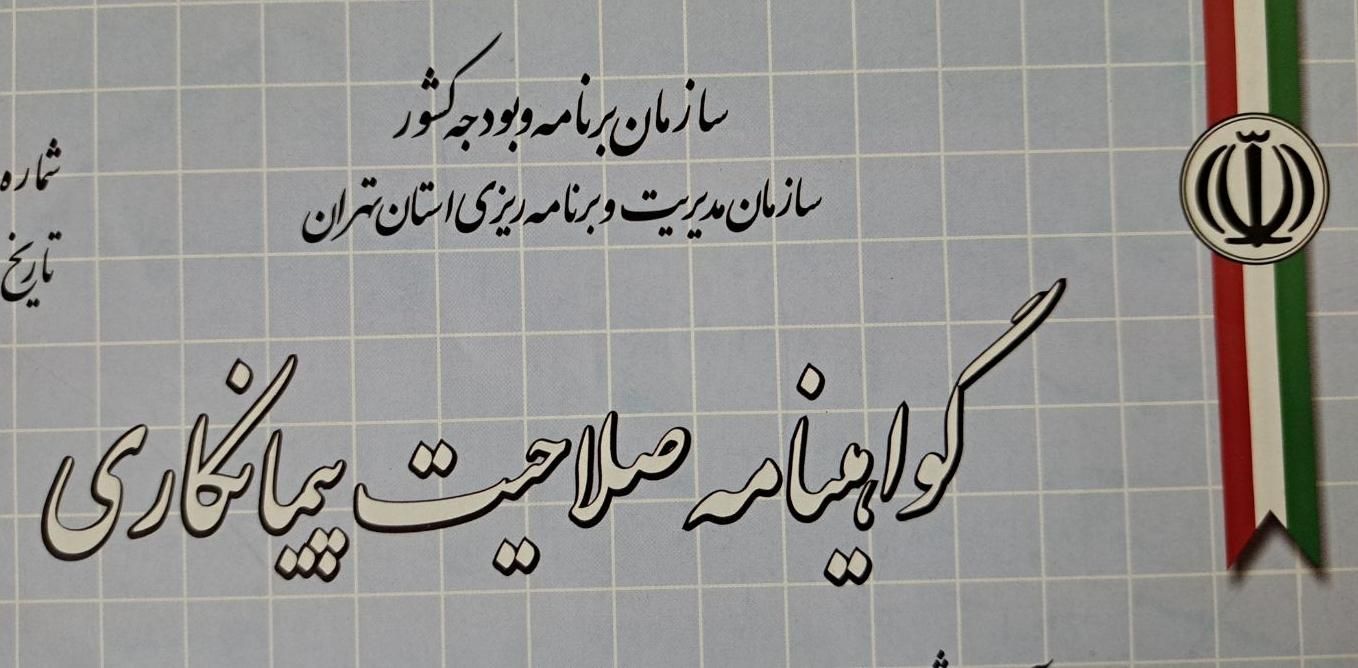 سازمان برنامه و بودجه کشور
سازمان مدیریت و برنامه ریزی استان تهران
شماره
تاریخ
گواهینامه صلاحیت پیمانکاری